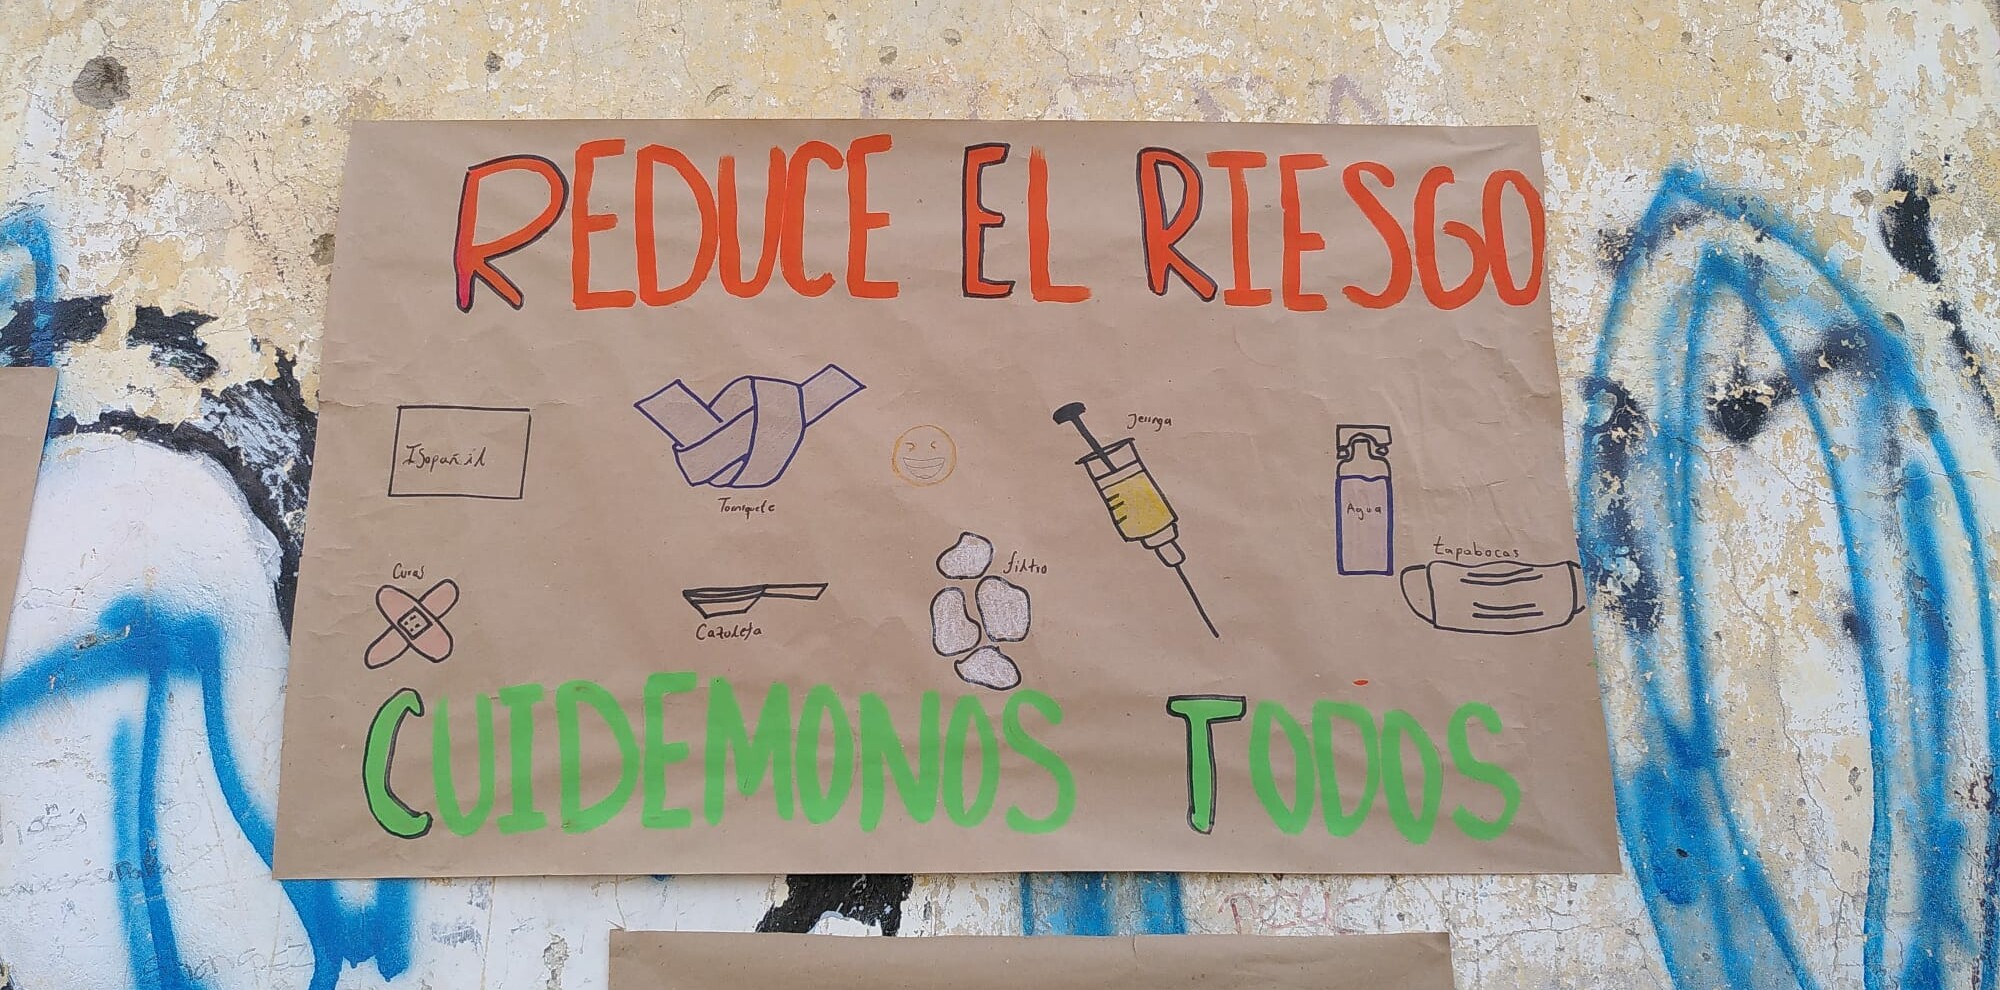 REDUCE EL RIESGO
Isopañil
Torniquete
Jeringa
Agua
tapabocas
Curas
Cazoleta
filtro
CUIDEMONOS TODOS